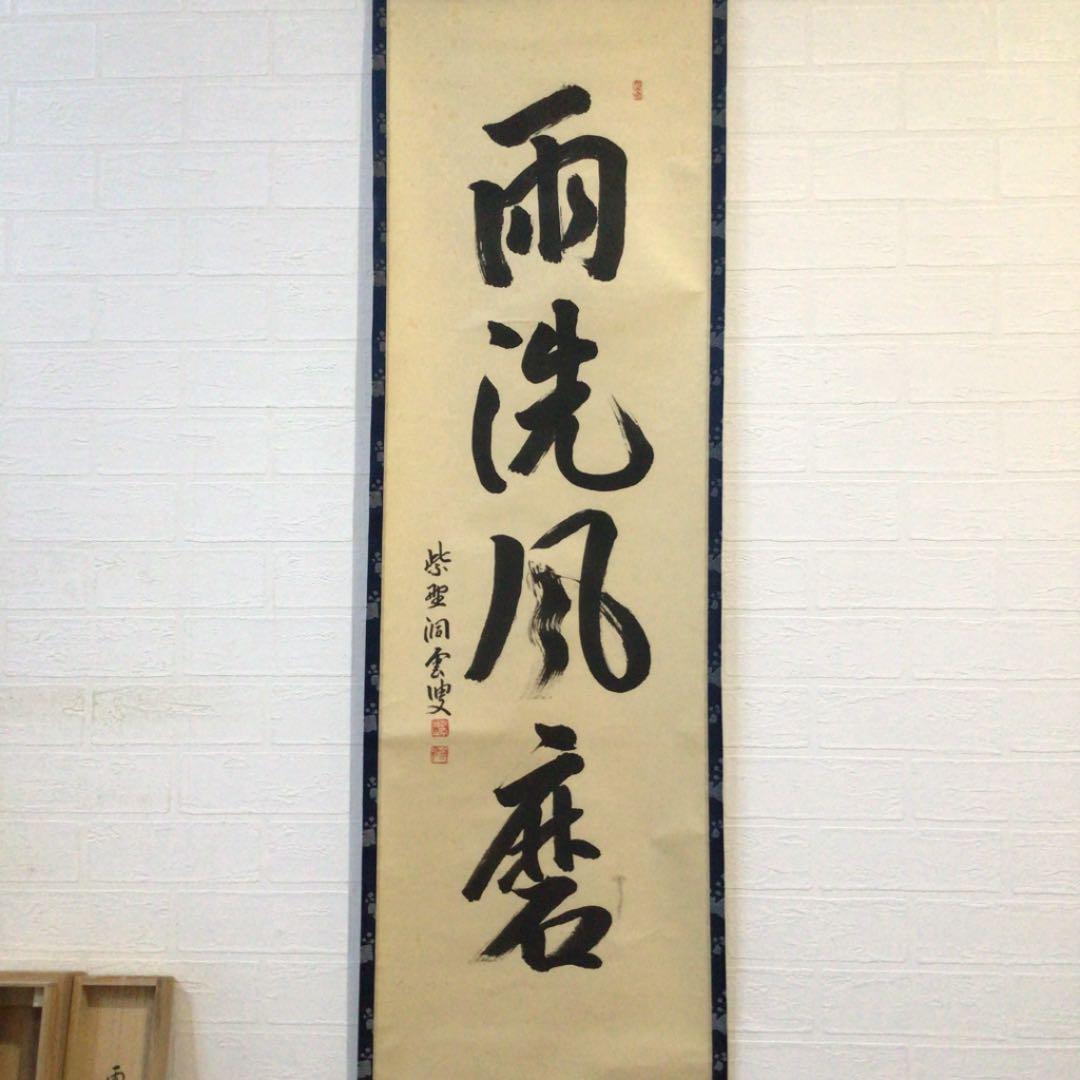 雨洗風磨
紫野洞雲叟
雨